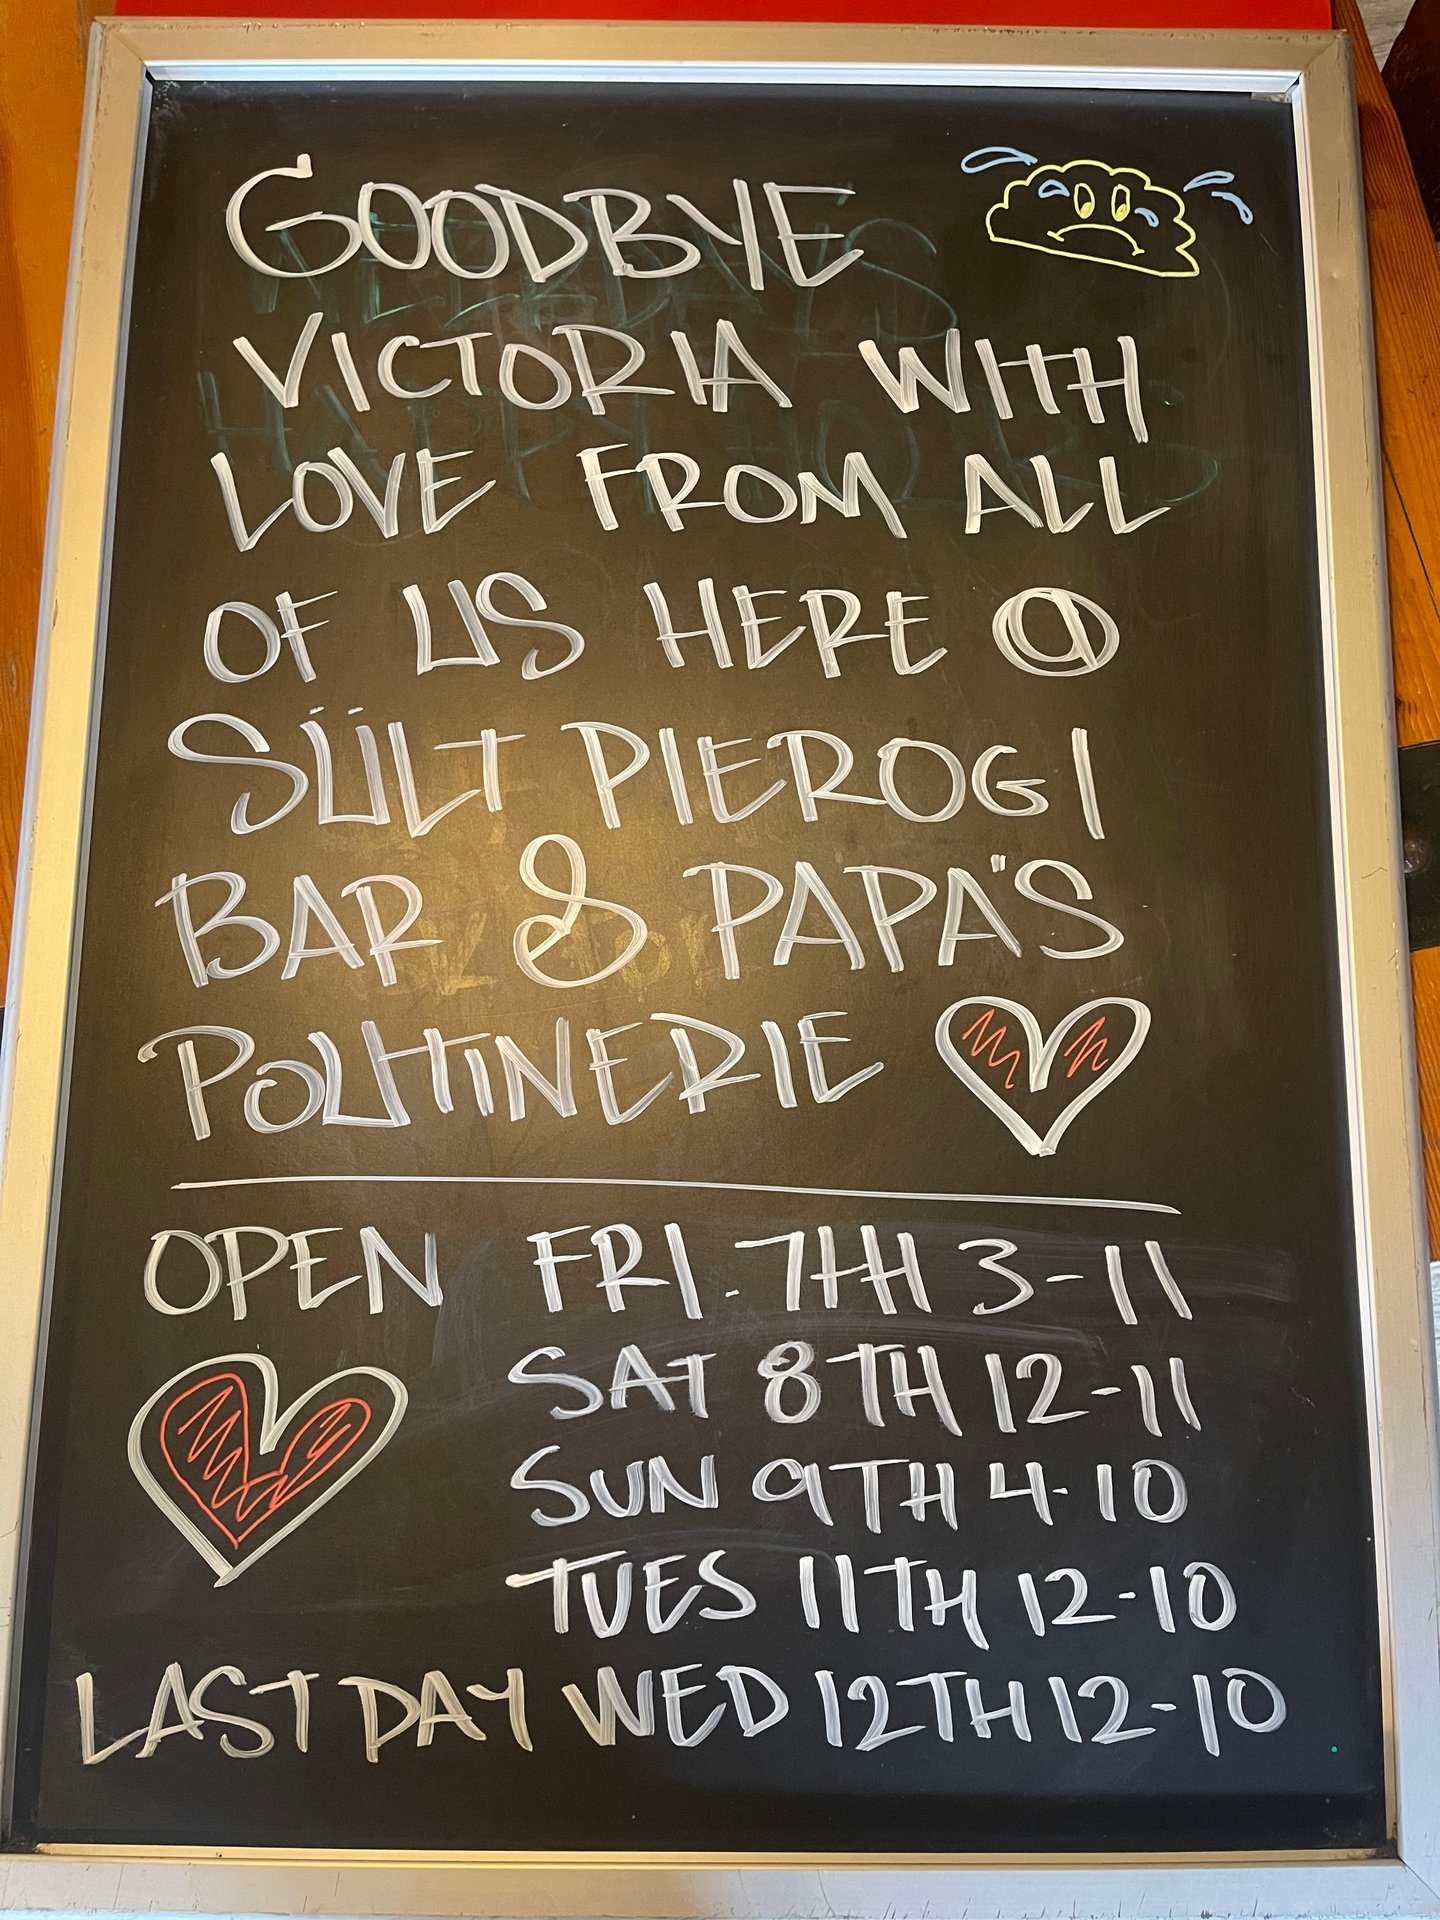 GOODBYE
VICTORIA WITH
LOVE FROM ALL
OF US HERE @
SÜLT PIEROGI
BAR & PAPA'S
POUTINERIE
OPEN FRI. 7TH 3-11
SAT 8TH 12-11
SUN 9TH 4-10
TUES 11TH 12-10
LAST DAY WED 12TH 12-10